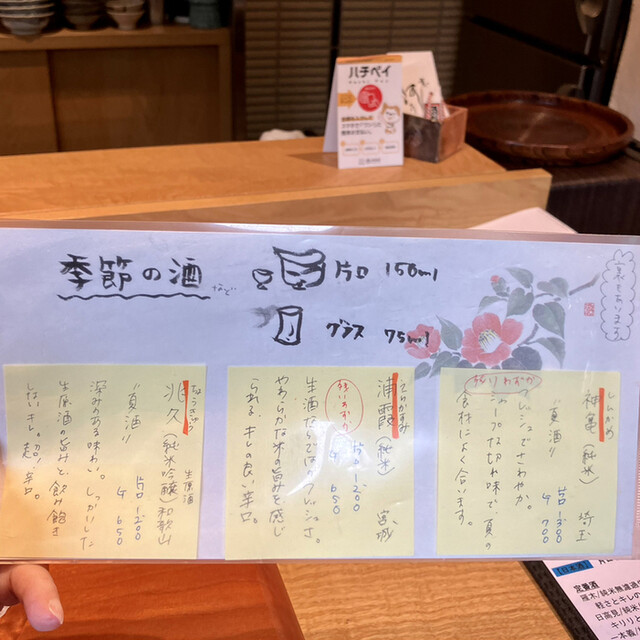 季節の酒 など
片口 150ml
グラス 75ml
裏もあります
しんかめ
神亀(純米) 埼玉
残りわずか
"夏酒"
片口 1300
グ 700
フレッシュでさわやか。
シャープな切れ味で夏の
食材によく合います。
うらかすみ
浦霞(純米) 宮城
残りわずか
片口 1200
グ 650
生酒ならではのフレッシュさ。
やわらかな米の旨みを感じ
られる、キレのあい辛口。
生原酒
(純米吟醸)和歌山
"夏酒"
片口 1200
グ 650
深みのある味わい。しっかりした
生原酒の旨みと飲み飽き
しないキレ。超!辛口。
ハチペイ
【日本酒】
定番酒